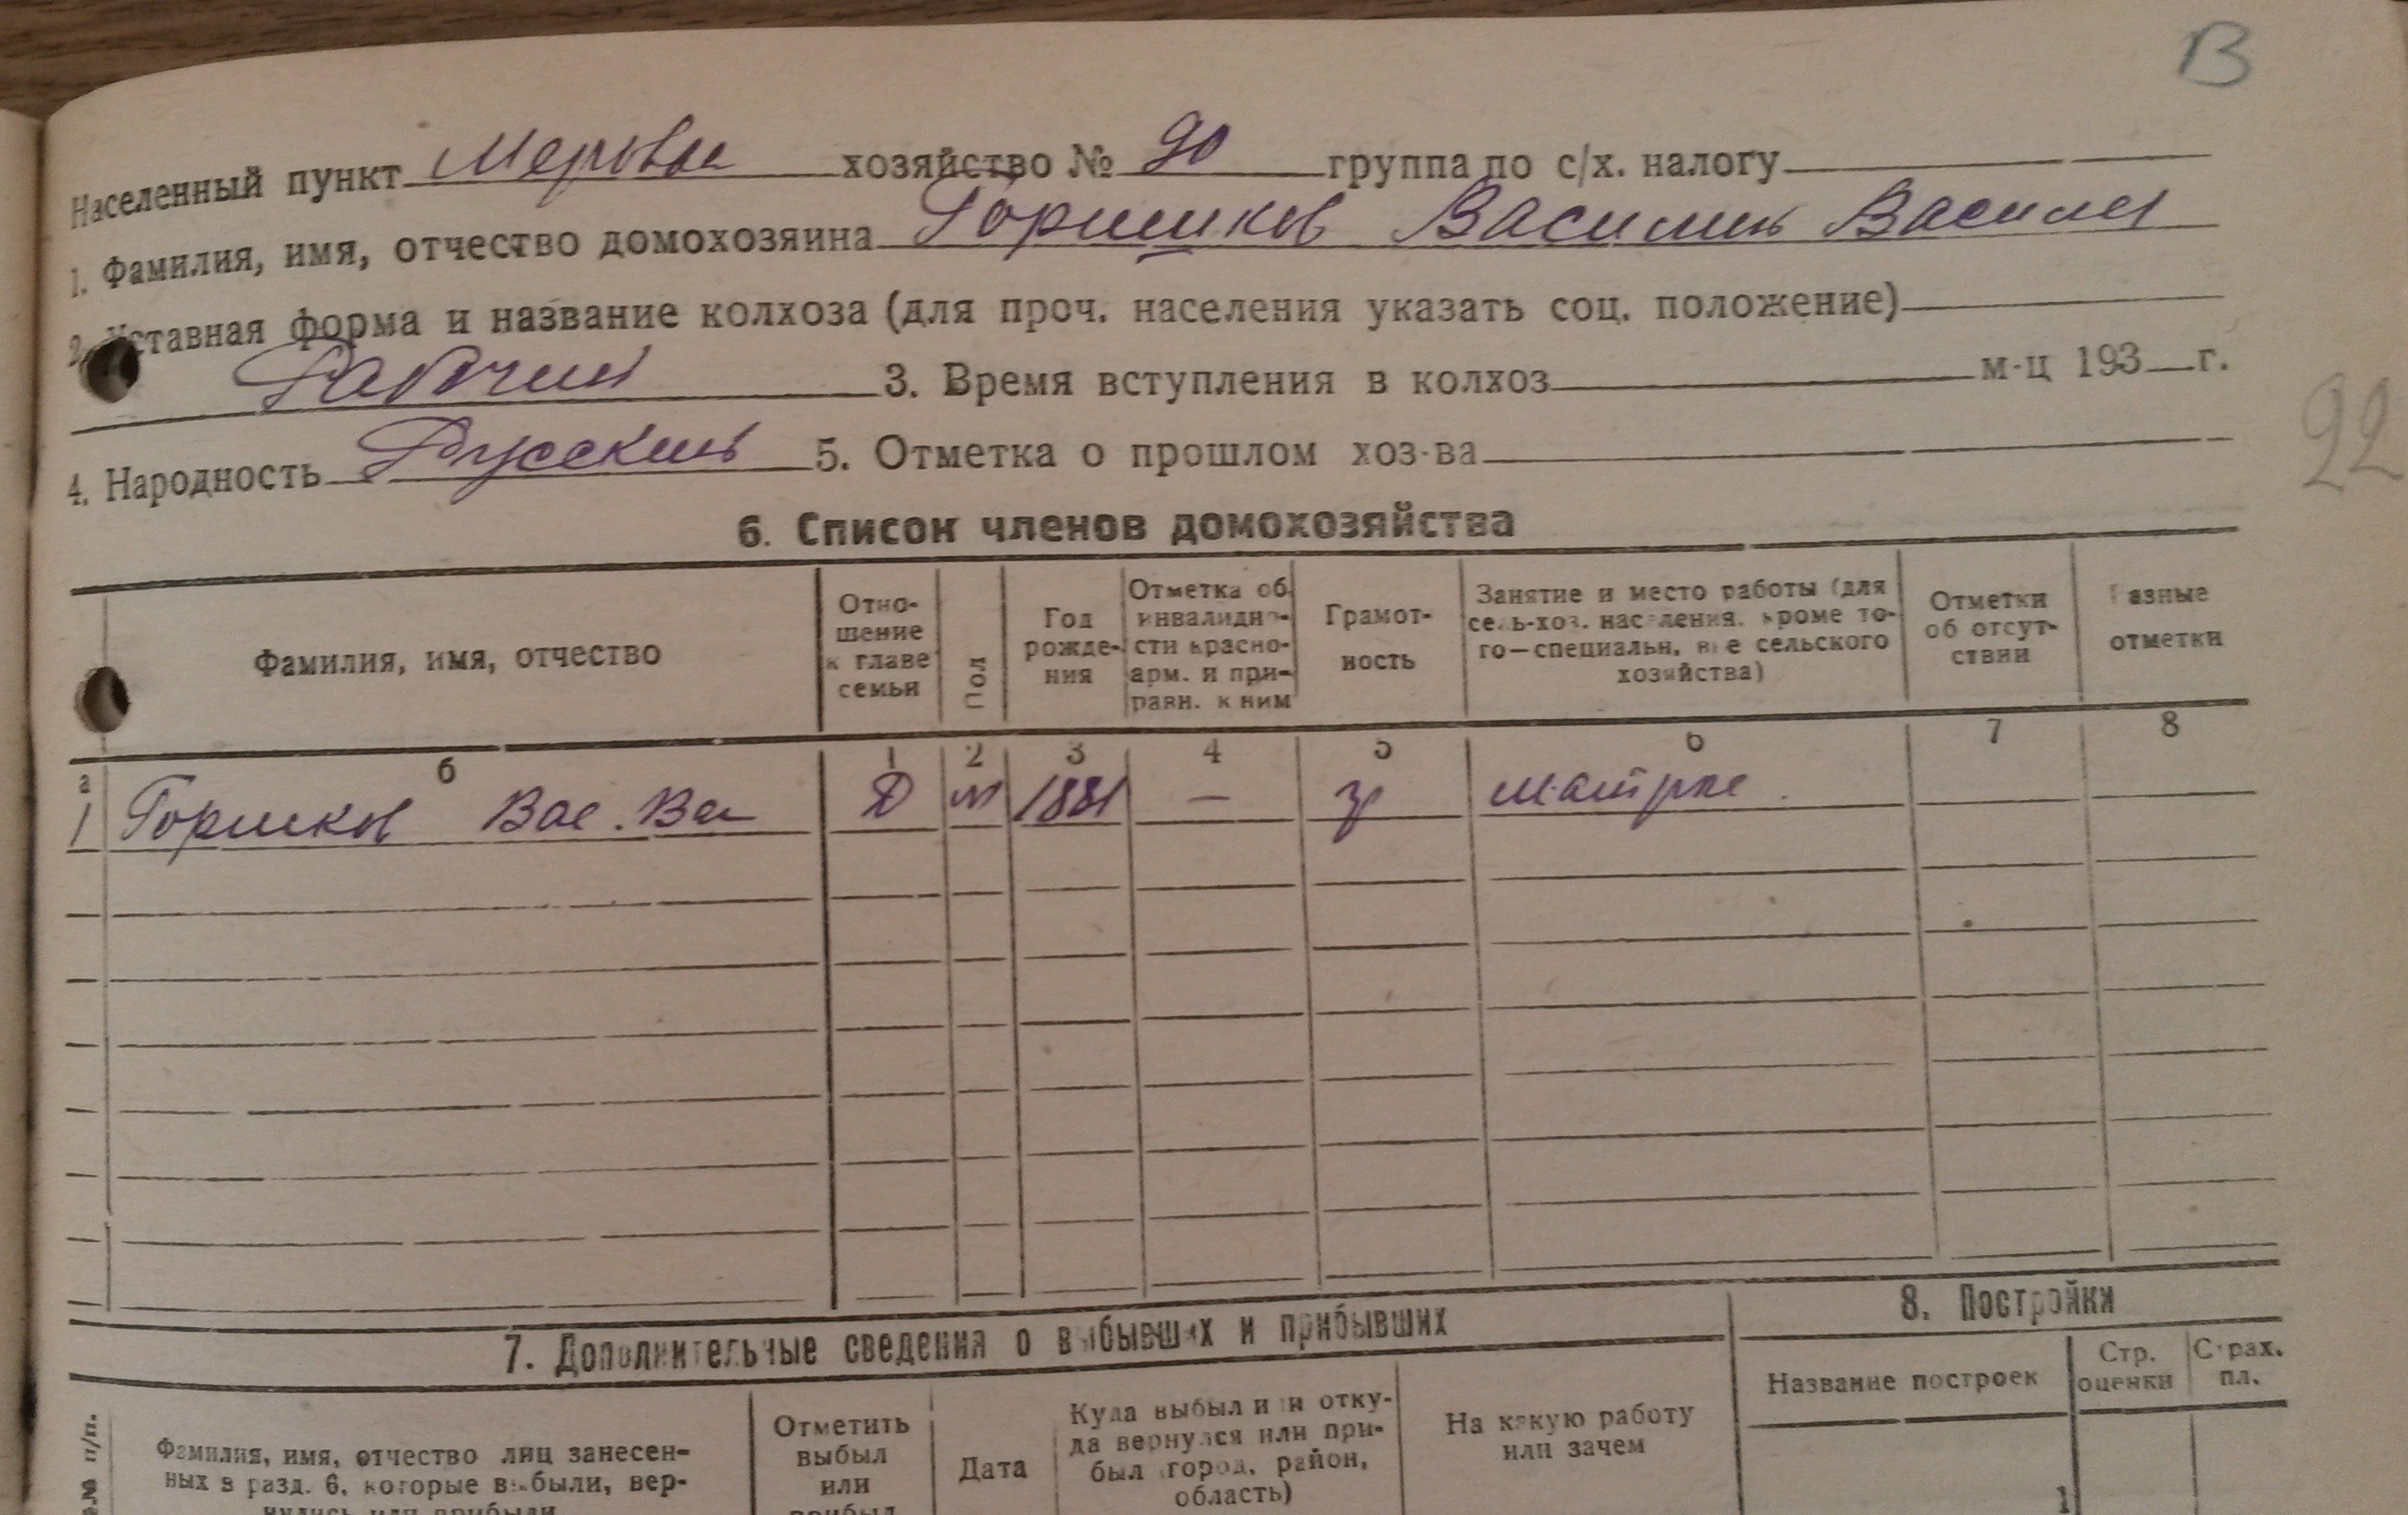 В
Населенный пункт хозяйство № 90 группа по с/х. налогу
1. Фамилия, имя, отчество домохозяина Горшков Василий Василь
2. Уставная форма и название колхоза (для проч. населения указать соц. положение)
Рабочий 3. Время вступления в колхоз м-ц 193 г.
92
4. Народность Русский 5. Отметка о прошлом хоз-ва
6. Список членов домохозяйства
Фамилия, имя, отчество
Отно-
шение
к главе
семьи
Пол
Год
рожде-
ния
Отметка об
инвалидно-
сти красно-
арм. и при-
равн. к ним
Грамот-
ность
Занятие и место работы (для
сель-хоз. населения, кроме то-
го—специальн, вне сельского
хозяйства)
Отметки
об отсут-
ствии
Разные
отметки
а б 1 2 3 4 5 6 7 8
1 Горшков Вас. Ва м 1881 — гр
7. Дополнительные сведения о выбывших и прибывших
8. Постройки
№№ п/п.
Фамилия, имя, отчество лиц занесен-
ных в разд. 6, которые выбыли, вер-
нулись или прибыли
Отметить
выбыл
или
прибыл
Дата
Куда выбыл или отку-
да вернулся или при-
был (город, район,
область)
На какую работу
или зачем
Название построек
Стр.
оценки
Страх.
пл.
1